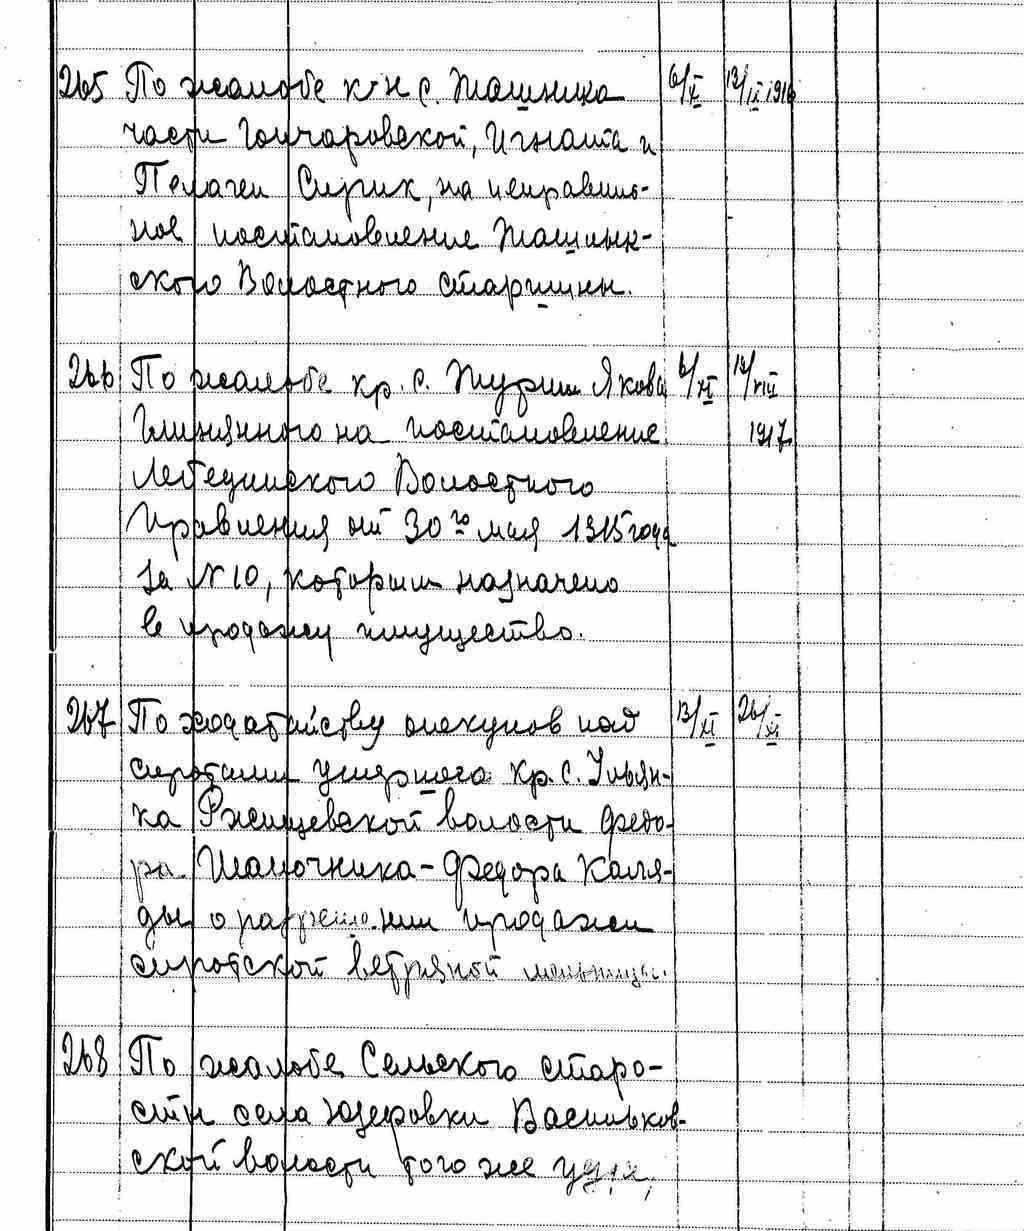 265 По жалобе к-н с. Жашника 6/X 12/IX 1916
части Гончаровской, Игната и
Пелагеи Сирик, на неправиль-
ное постановление Жашнык-
ского Волостного старшины.
266 По жалобе кр. с. Журжи Якова 6/XI 12/VIII
на постановление 1917
Лебединского Волостного
Правления от 30го мая 1915 года
за N 10, которым назначено
в продажу имущество.
267 По ходатайству опекунов над 13/XI 26/XI
сиротами умершего кр. с. Ульян-
ка Ржищевской волости Федо-
ра Шапочника - Федора Каля-
ды о разрешении продажи
сиротской ветряной мельницы.
268 По жалобе Сельского старо-
сты села Васильков-
ской волости того же уезда,